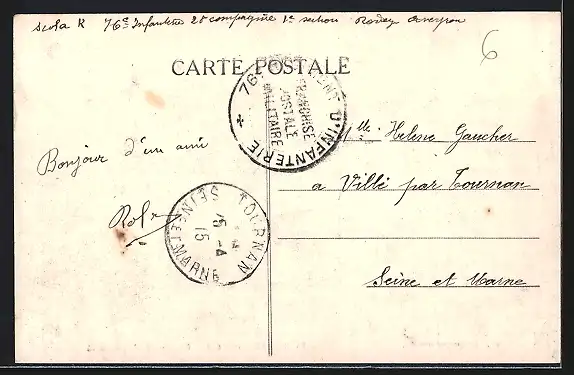 Scola R 76e Infanterie 28 compagnie 1e section Rodez Aveyron
6
CARTE POSTALE
76 D'INFANTERIE
FRANCHISE
POSTALE
MILITAIRE
Mlle Helene Gaucher
Bonjour d'un ami
a Villé par Tournan
Rolr
TOURNAN
SEINE ET MARNE
15-4
15
Seine et Marne